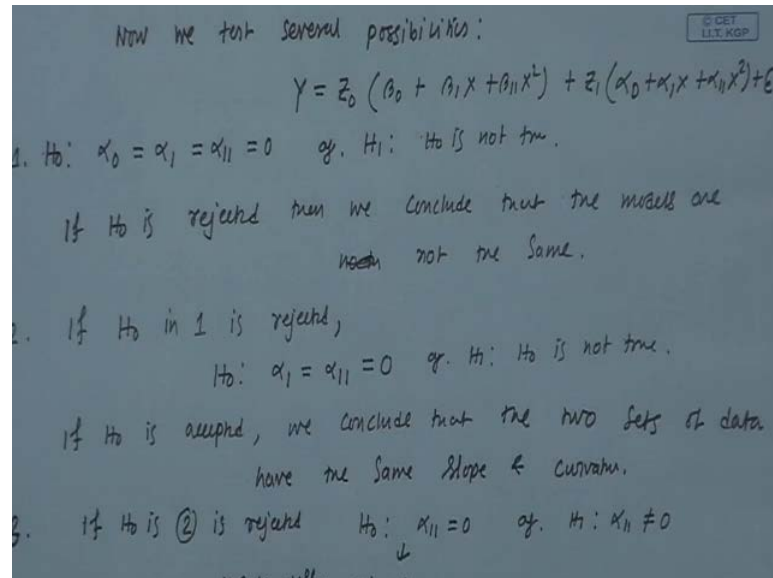 Now we test several possibilities:
© CET
I.I.T. KGP
Y = Z₀ (β₀ + β₁X + β₁₁X²) + Z₁(α₀+α₁X+α₁₁X²)+ε
1. H₀: α₀ = α₁ = α₁₁ = 0 vs. H₁: H₀ is not true.
If H₀ is rejected then we conclude that the models are
not the same.
2. If H₀ in 1 is rejected,
H₀: α₁ = α₁₁ = 0 vs. H₁: H₀ is not true.
If H₀ is accepted, we conclude that the two sets of data
have the same slope & curvature.
3. If H₀ is ② is rejected H₀: α₁₁ = 0 vs. H₁: α₁₁ ≠ 0
↓